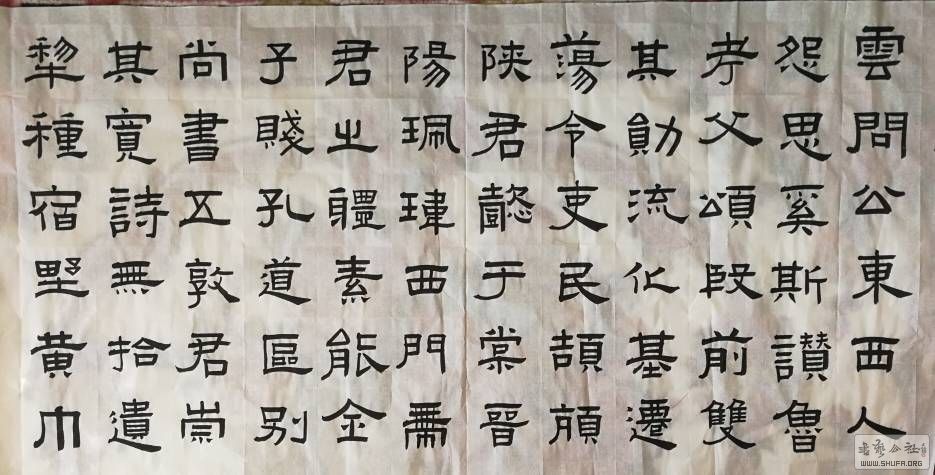 雲問公東西人
怨思奚斯讃魯
考父頌殷前雙
其勛流化基遷
蕩令吏民頡頏
陝君懿于棠晉
陽珮瑋西門帶
君之疆素能金
子賤孔道區别
尚書五敦君崇
其寬詩無拾遺
犂種宿野黄巾
书艺公社
WWW.SHUFA.ORG